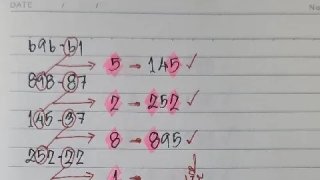 DATE / / No
696-61
5 → 145 ✓
898-87
2 → 252 ✓
145-37
8 → 895 ✓
252-22
1